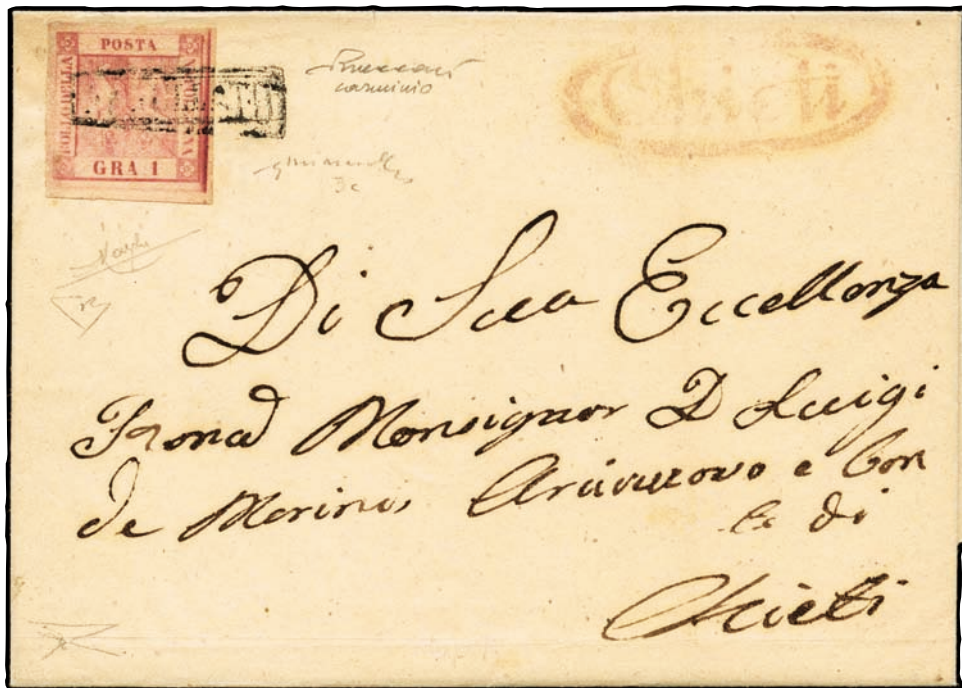 POSTA
BOLLO DELLA
NAPOLETANA
GRA 1
ANNULLATO
Chieti
carminio
Di Sua Eccellenza
Monsignor D Luigi
de Marinis Arcivescovo e Con
te di
Chieti